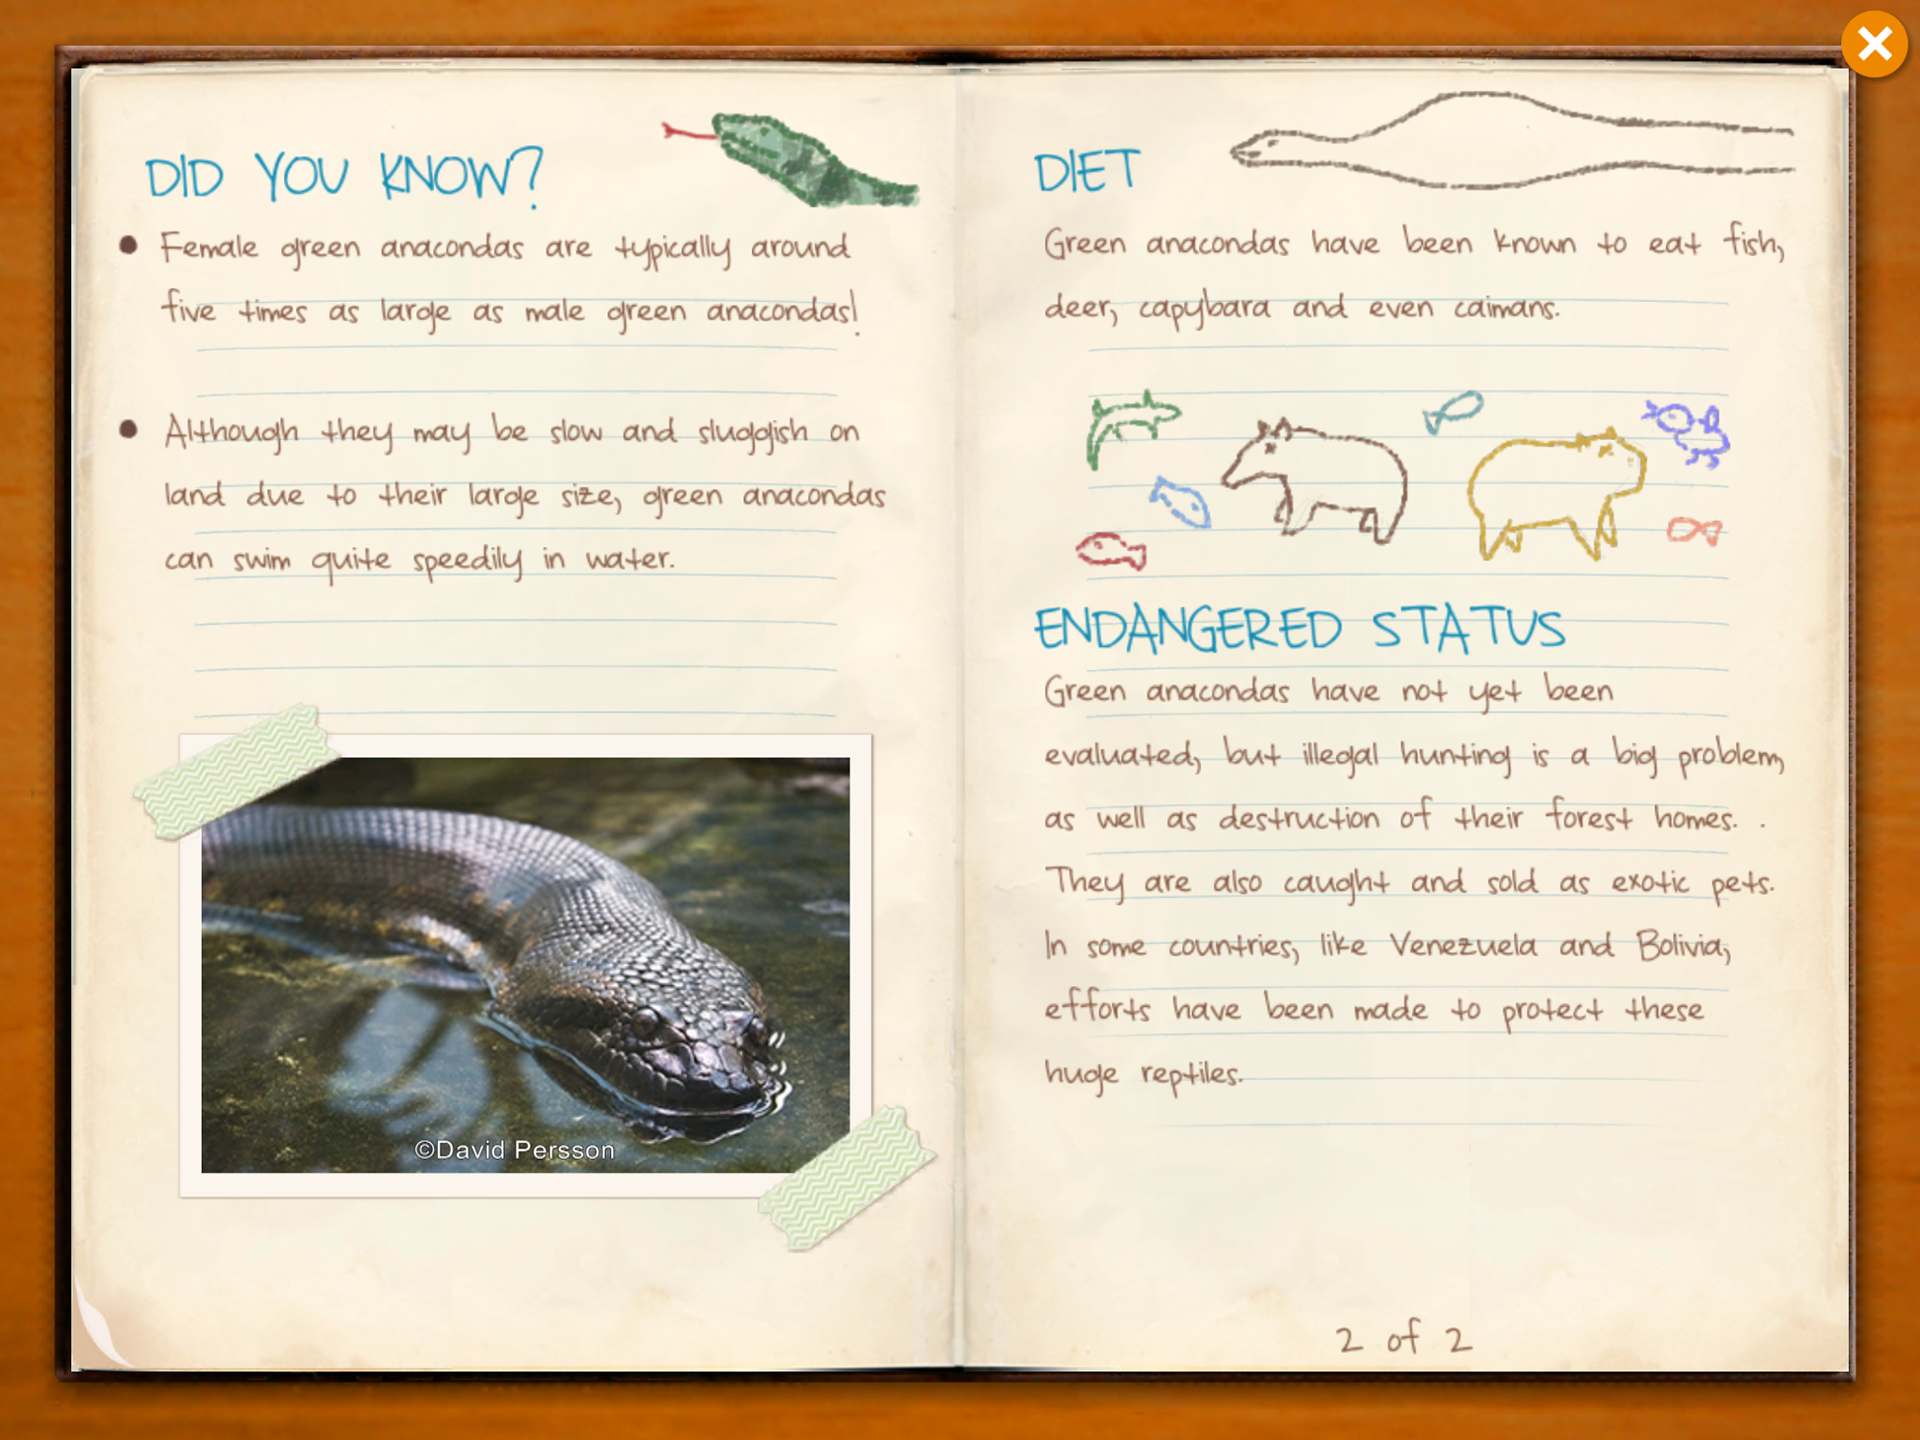 DID YOU KNOW?
• Female green anacondas are typically around
five times as large as male green anacondas!
• Although they may be slow and sluggish on
land due to their large size, green anacondas
can swim quite speedily in water.
©David Persson
DIET
Green anacondas have been known to eat fish,
deer, capybara and even caimans.
ENDANGERED STATUS
Green anacondas have not yet been
evaluated, but illegal hunting is a big problem,
as well as destruction of their forest homes. .
They are also caught and sold as exotic pets.
In some countries, like Venezuela and Bolivia,
efforts have been made to protect these
huge reptiles.
2 of 2